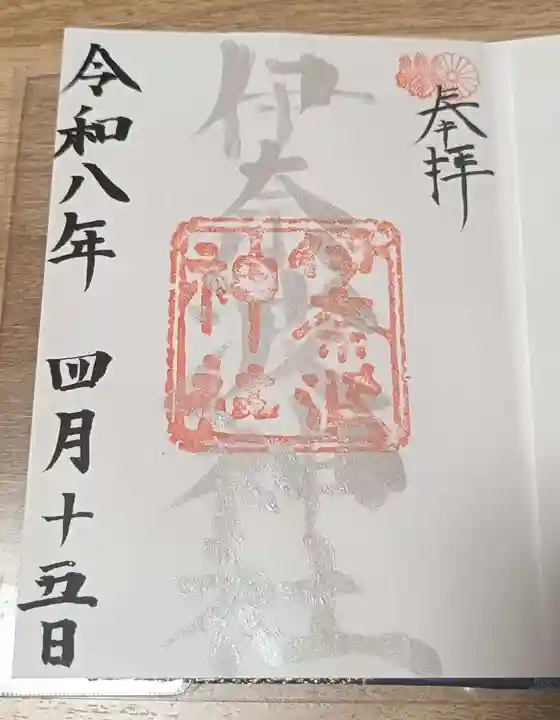 奉拝
伊奈波神社
伊奈波
神社
令和八年 四月十五日